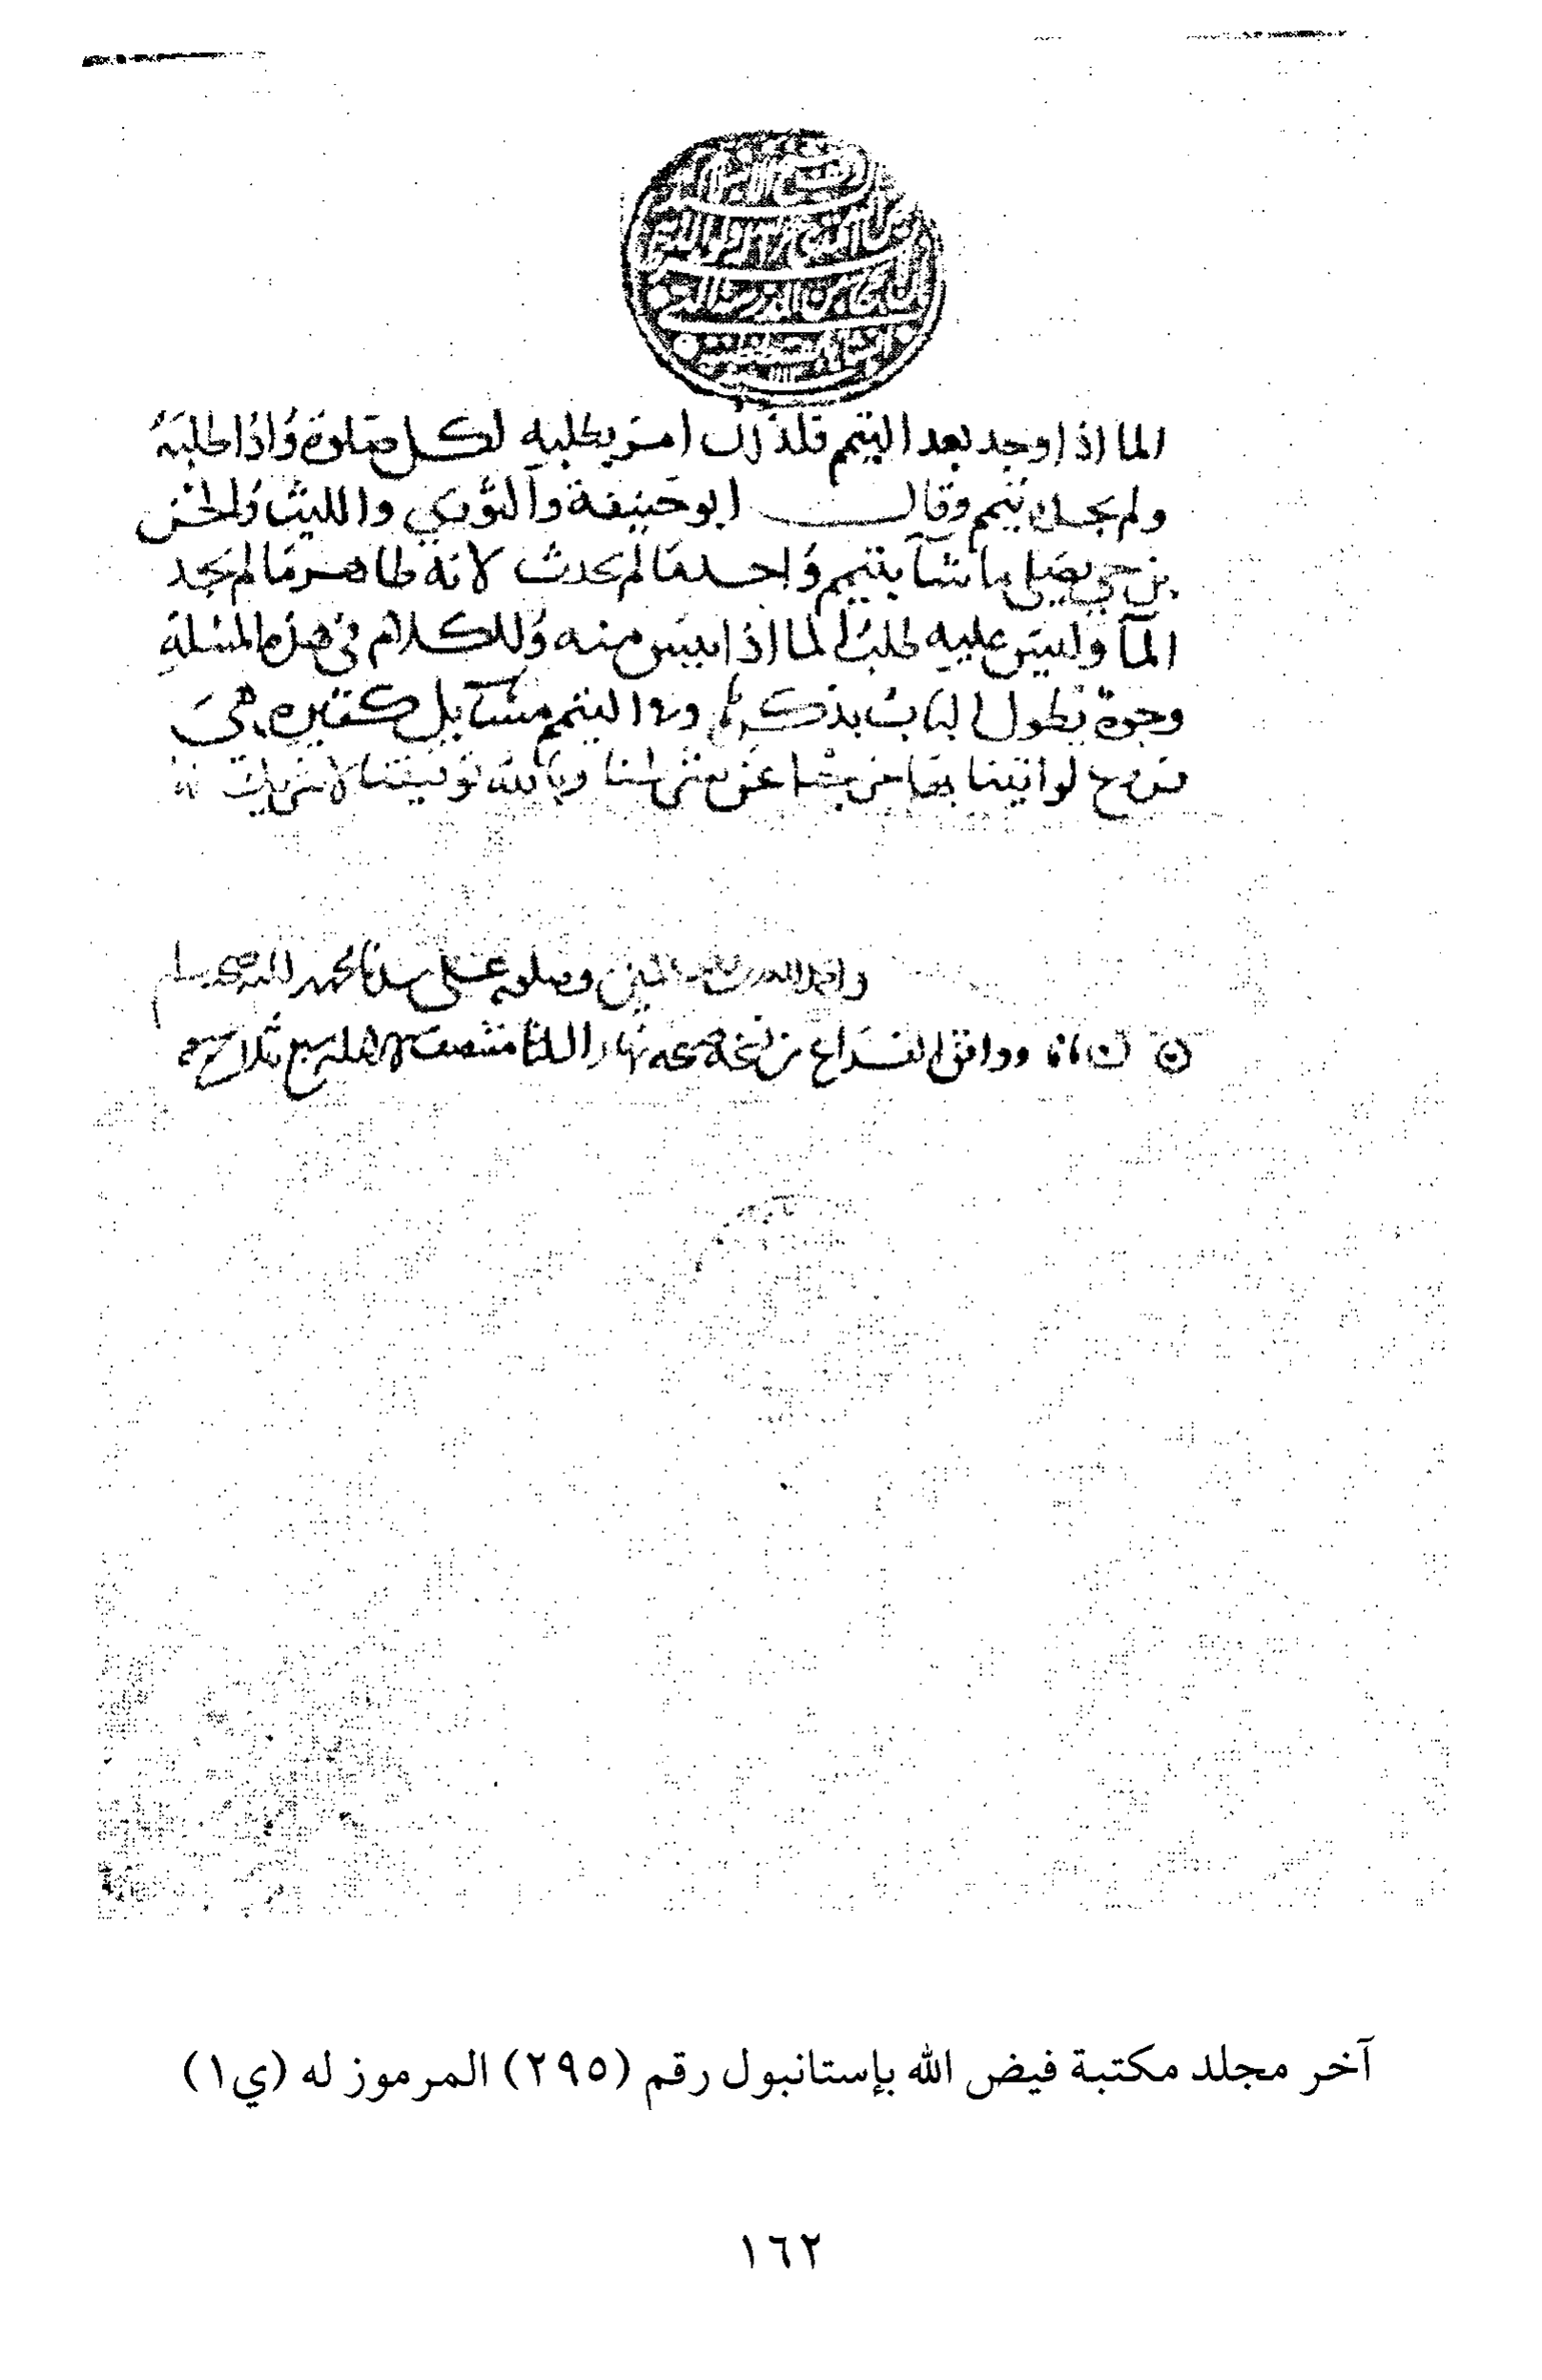 الما اذا وجد بعد التيمم فلذلك امر بطلبه لكل صلوة واذا طلبه
ولم يجد تيمم وقال ابو حنيفة والثوري والليث والحسن
بن حي يصلي ما شآ بتيمم واحد ما لم يحدث لانه طاهر ما لم يجد
المآ وليس عليه طلب الما اذا يىس منه وللكلام في هذه المسلة
وجوه يطول الباب بذكرها وفي التيمم مسآيل كثيره هي
فروح لو اتينا بها خرجنا عن شرطنا وبالله توفيقنا لا شريك
والحمد لله رب العالمين وصلوته على سيدنا محمد
ووافق الفراغ من نهار الثلثا منتصف
آخر مجلد مكتبة فيض الله بإستانبول رقم (٢٩٥) المرموز له (ي١)
١٦٢